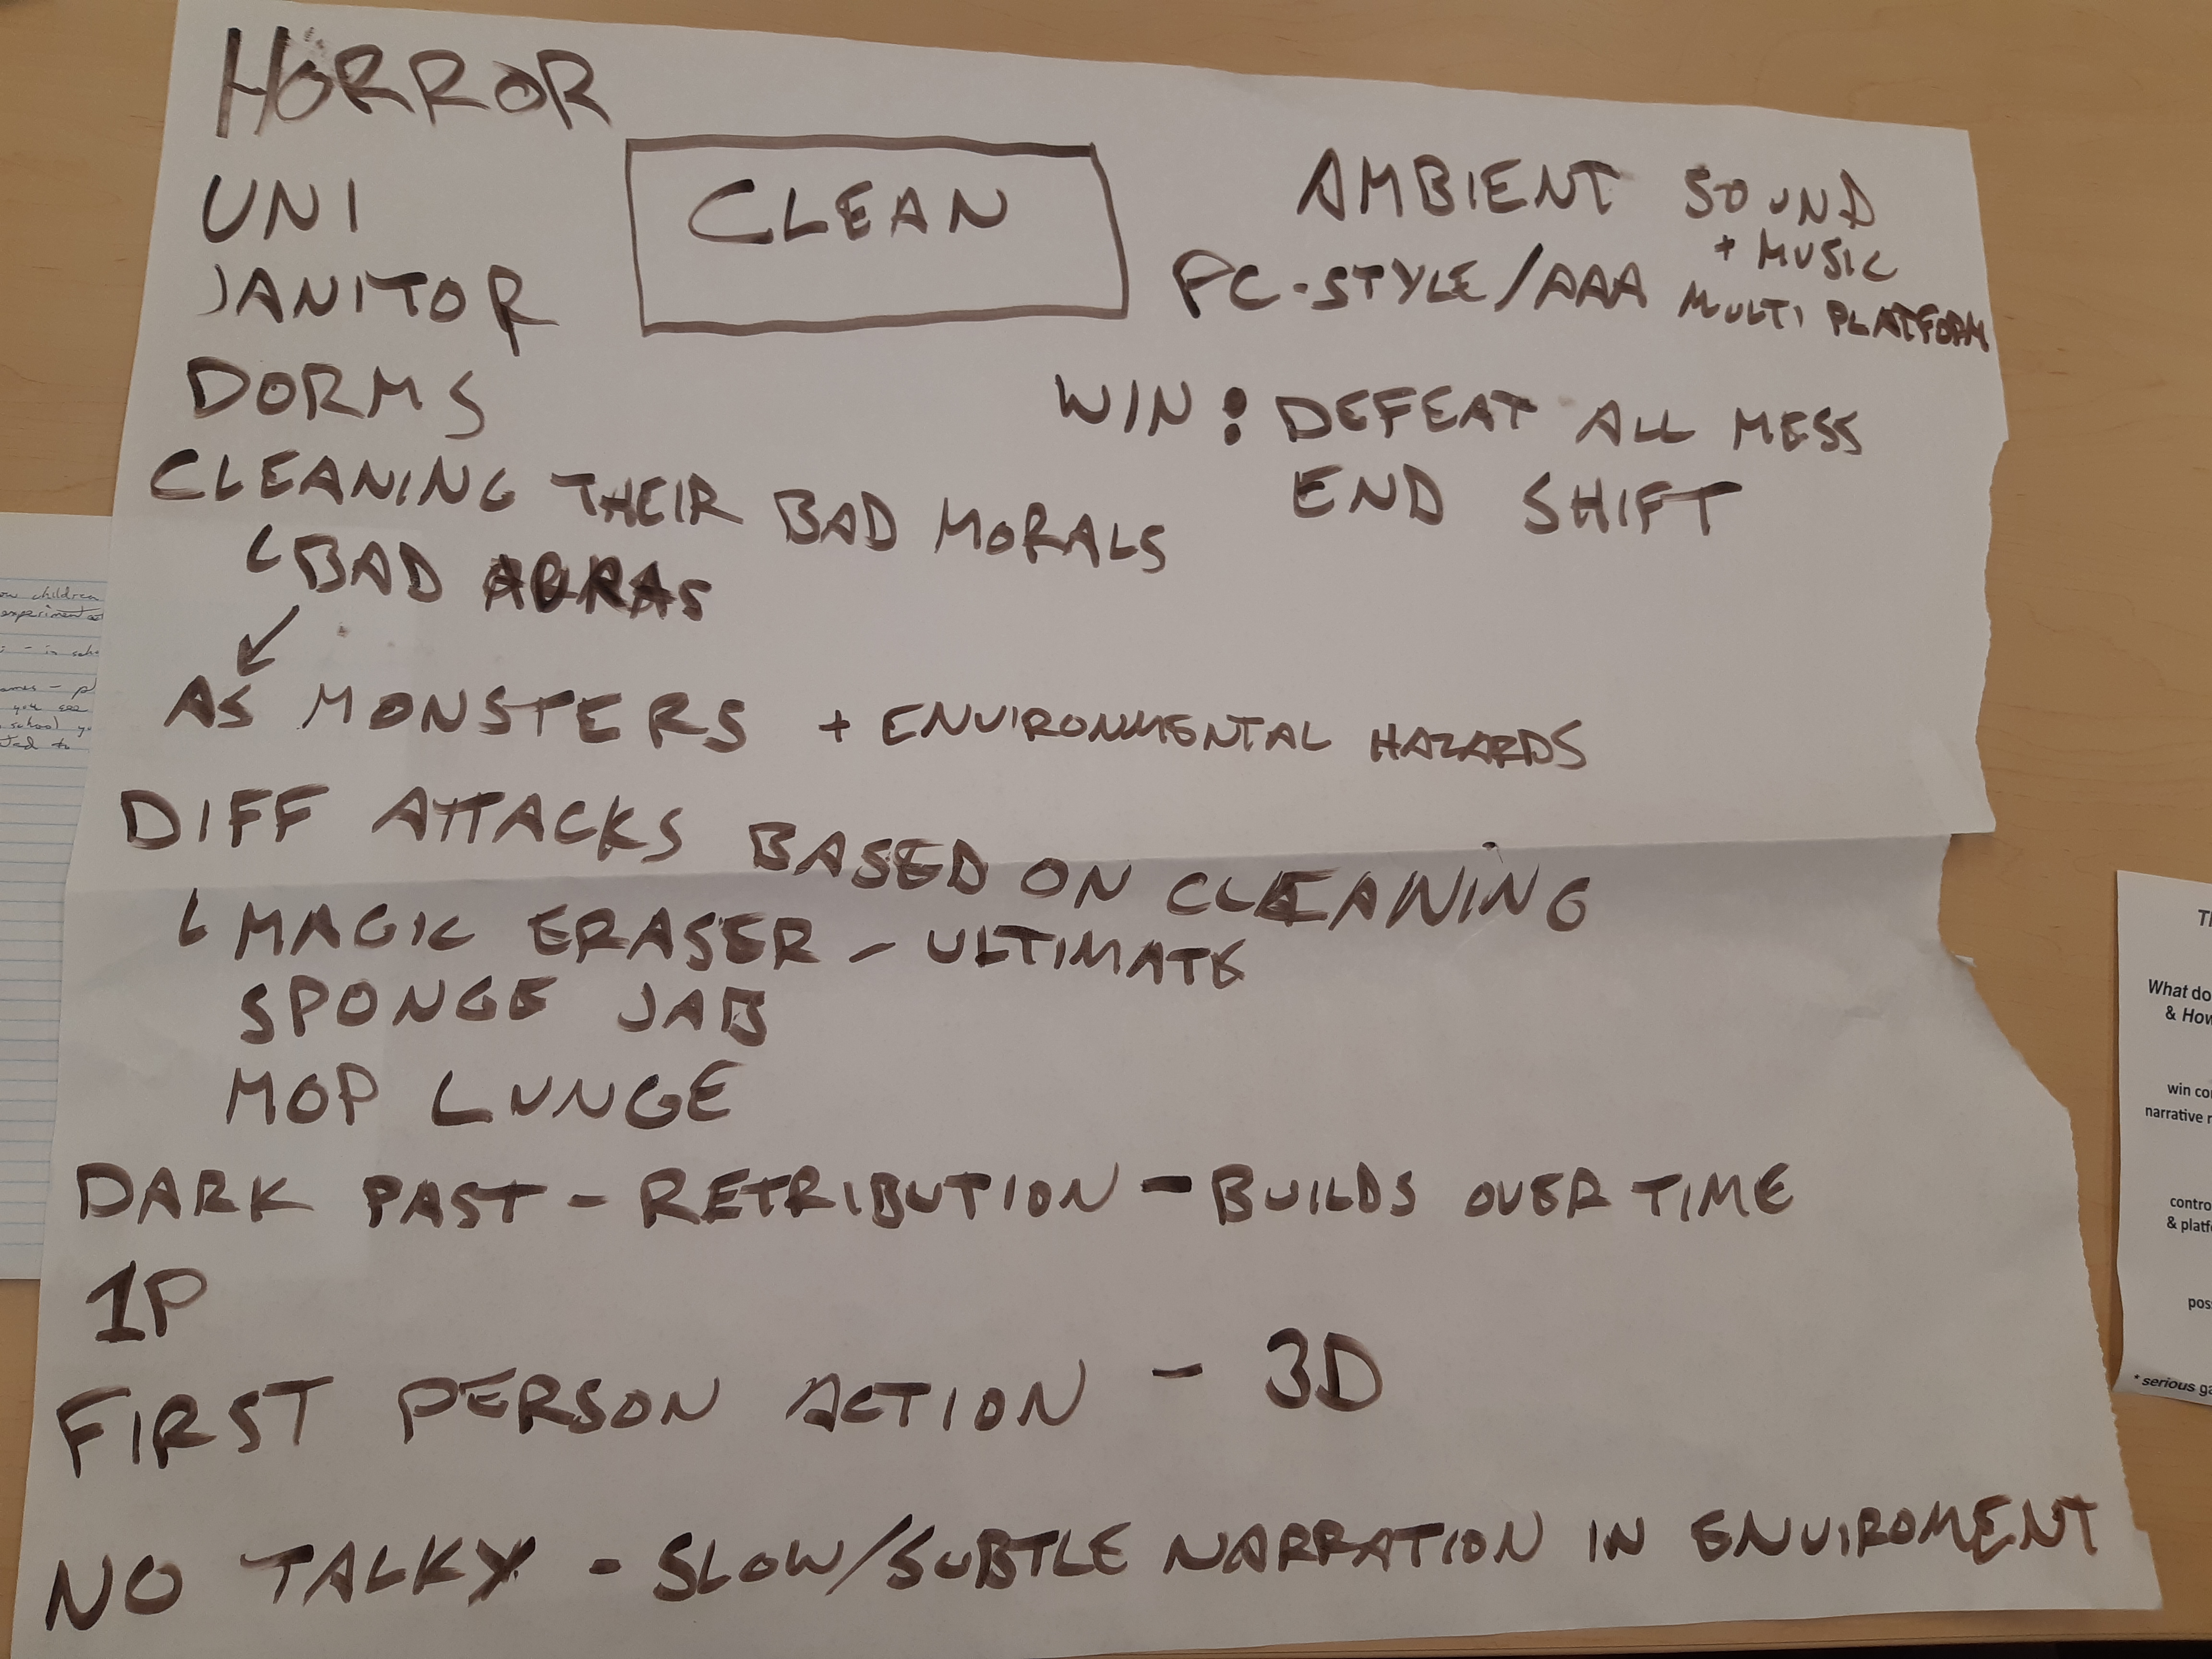 HORROR
UNI
JANITOR
DORMS
CLEAN
AMBIENT SOUND
+ MUSIC
PC-STYLE/AAA MULTI PLATFORM
WIN: DEFEAT ALL MESS
END SHIFT
CLEANING THEIR BAD MORALS
BAD AURAS
AS MONSTERS + ENVIRONMENTAL HAZARDS
DIFF ATTACKS BASED ON CLEANING
MAGIC ERASER - ULTIMATE
SPONGE JAB
MOP LUNGE
DARK PAST - RETRIBUTION - BUILDS OVER TIME
1P
FIRST PERSON ACTION - 3D
NO TALKY - SLOW/SUBTLE NARRATION IN ENVIROMENT
children
experiment
- in
you see
school)
to
What do
& How
win
narrative
& 
* serious